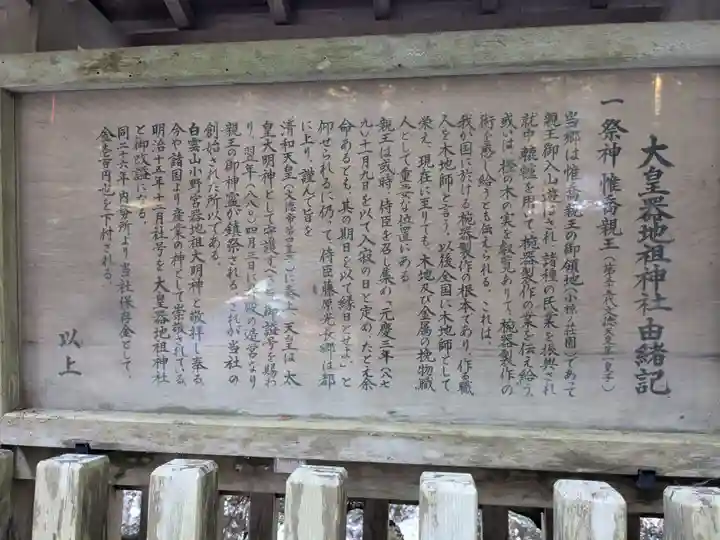 大皇器地祖神社 由緒記
一 祭神 惟喬親王（第五十五代文徳天皇第一皇子）
当郷は惟喬親王の御領地（小椋ノ荘園）であって
親王御入山遊ばされ諸種の民業を振興され
就中轆轤を用ひて椀器製作の業を伝え給う
或いは、橡の木の実を叡覧ありて椀器製作の
術を思い給うとも伝えられる。これは、
我が国に於ける椀器製作の根本であり、作る職
人を木地師と言う。以後全国に木地師として
栄え、現在に至りても、木地及び金属の挽物職
人として重要な位置にある。
親王は或時、侍臣を召し集め「元慶三年（八七
九）十一月九日を以て入寂の日と定め、たとえ余
命あるとも、其の期日を以て縁日とせよ」と
仰せられるに仍って、侍臣藤原 光大郷は都
に上り、謹んで旨を
清和天皇（文徳帝第四皇子）に奏上、天皇は、太
皇大明神として守護すべき御謚号を賜わ
り、翌年（八八〇）四月三日に 殿の造営なり
親王の御神霊が鎮祭される。これが当社の
創始された所以である。
白雲山小野宮器地祖大明神と敬拝し奉る
今や諸国より産業の神として崇敬されている
明治十五年十二月社号を大皇器地祖神社
と御改謚になる。
同二十六年内務所より当社保存金として、
金壱百円也を下付される。
以上